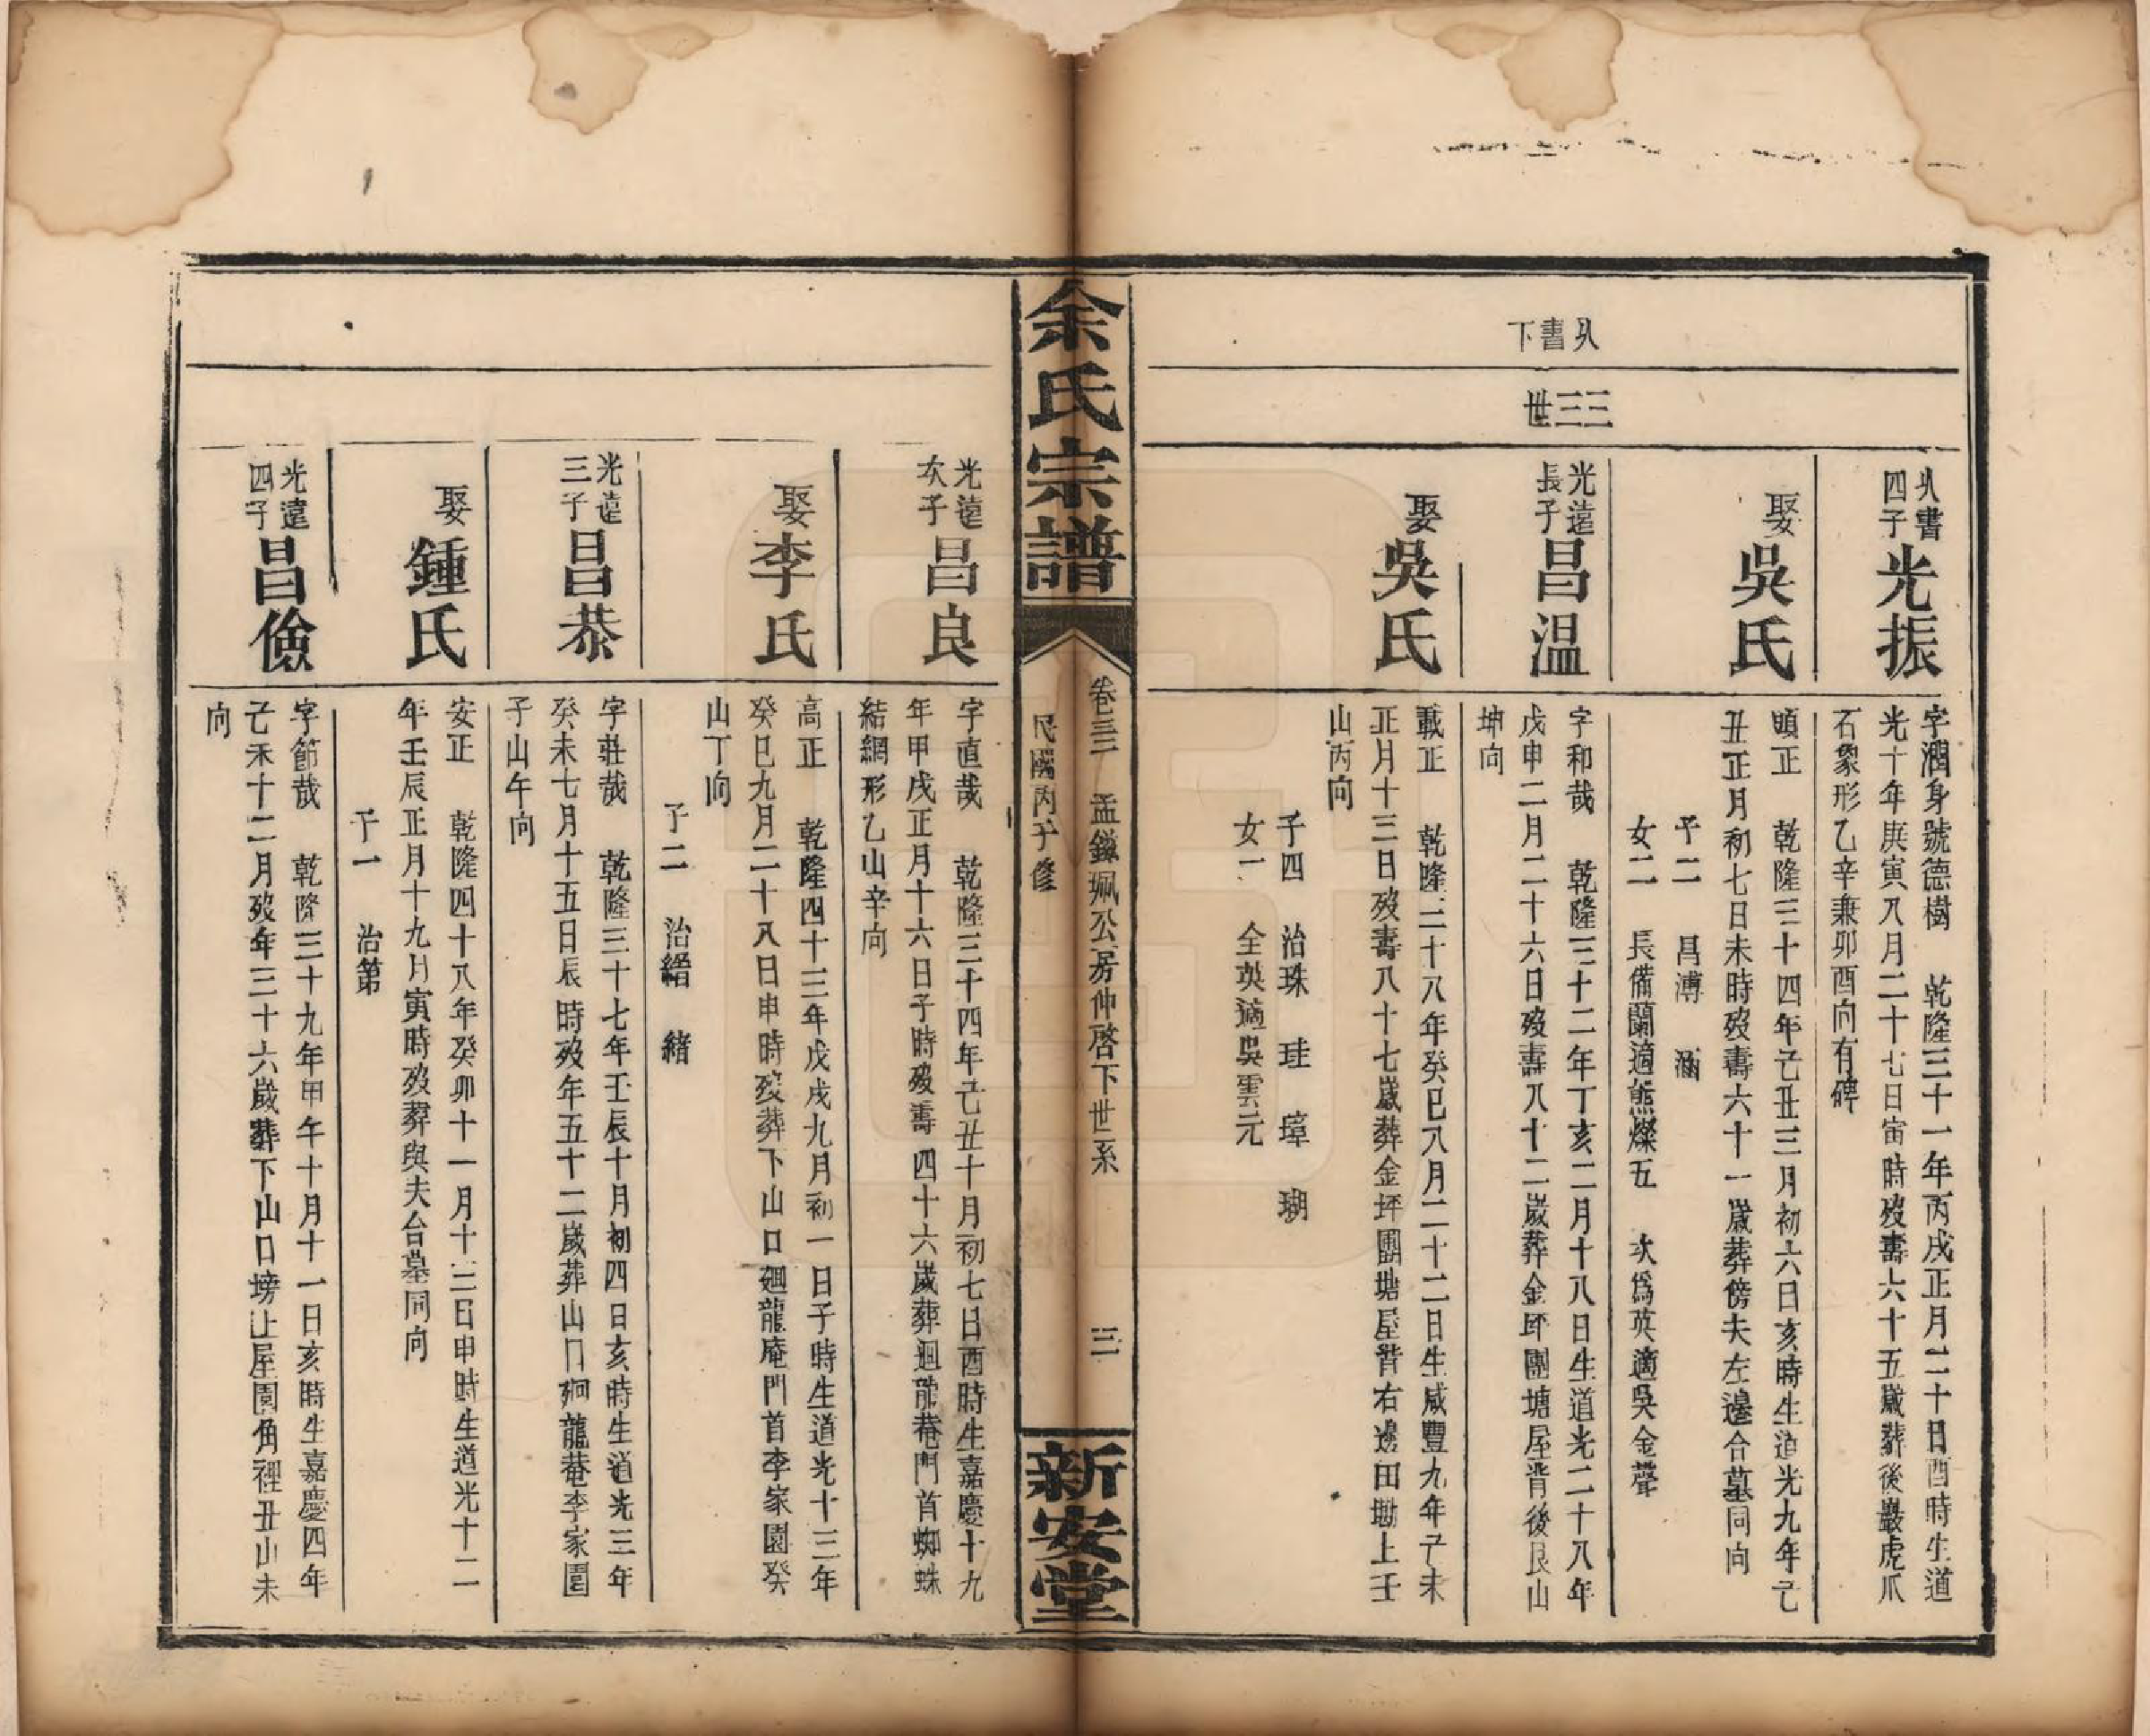 𠔃書下
三三世
𠔃書四子
光振
字潤身號德樹 乾隆三十一年丙戌正月二十日酉時生道
光十年庚寅八月二十七日寅時歿壽六十五歲葬後巖虎爪
石象形乙辛兼卯酉向有碑
娶
吳氏
頭正 乾隆三十四年己丑三月初六日亥時生道光九年己
丑正月初七日未時歿壽六十一歲葬傍夫左邊合墓同向
子二 昌溥 涵
女二 長備蘭適熊燦五 次爲英適吳金聲
光遠長子
昌溫
字和哉 乾隆三十二年丁亥二月十八日生道光二十八年
戊申二月二十六日歿壽八十二歲葬金坪團塘屋背後艮山
坤向
娶
吳氏
載正 乾隆三十八年癸巳八月二十二日生咸豐九年己未
正月十三日歿壽八十七歲葬金坪團塘屋背右邊田墈上壬
山丙向
子四 治珠 珪 璋 瑚
女一 全英適吳雲元
余氏宗譜
卷三二 孟鎰珮公房仲啓下世系 三
民國丙子修
新安堂
光遠次子
昌良
字直哉 乾隆三十四年己丑十月初七日酉時生嘉慶十九
年甲戌正月十六日子時歿壽四十六歲葬迴龍菴門首蜘蛛
結網形乙山辛向
娶
李氏
高正 乾隆四十三年戊戌九月初一日子時生道光十三年
癸巳九月二十八日申時歿葬下山口廻龍庵門首李家園癸
山丁向
子二 治縉 緒
光遠三子
昌恭
字莊哉 乾隆三十七年壬辰十月初四日亥時生道光三年
癸未七月十五日辰時歿年五十二歲葬山口廻龍菴李家園
子山午向
娶
鍾氏
安正 乾隆四十八年癸卯十一月十三日申時生道光十二
年壬辰正月十九日寅時歿葬與夫合墓同向
子一 治第
光遠四子
昌儉
字節哉 乾隆三十九年甲午十月十一日亥時生嘉慶四年
己未十二月歿年三十六歲葬下山口塝上屋園角裡丑山未
向